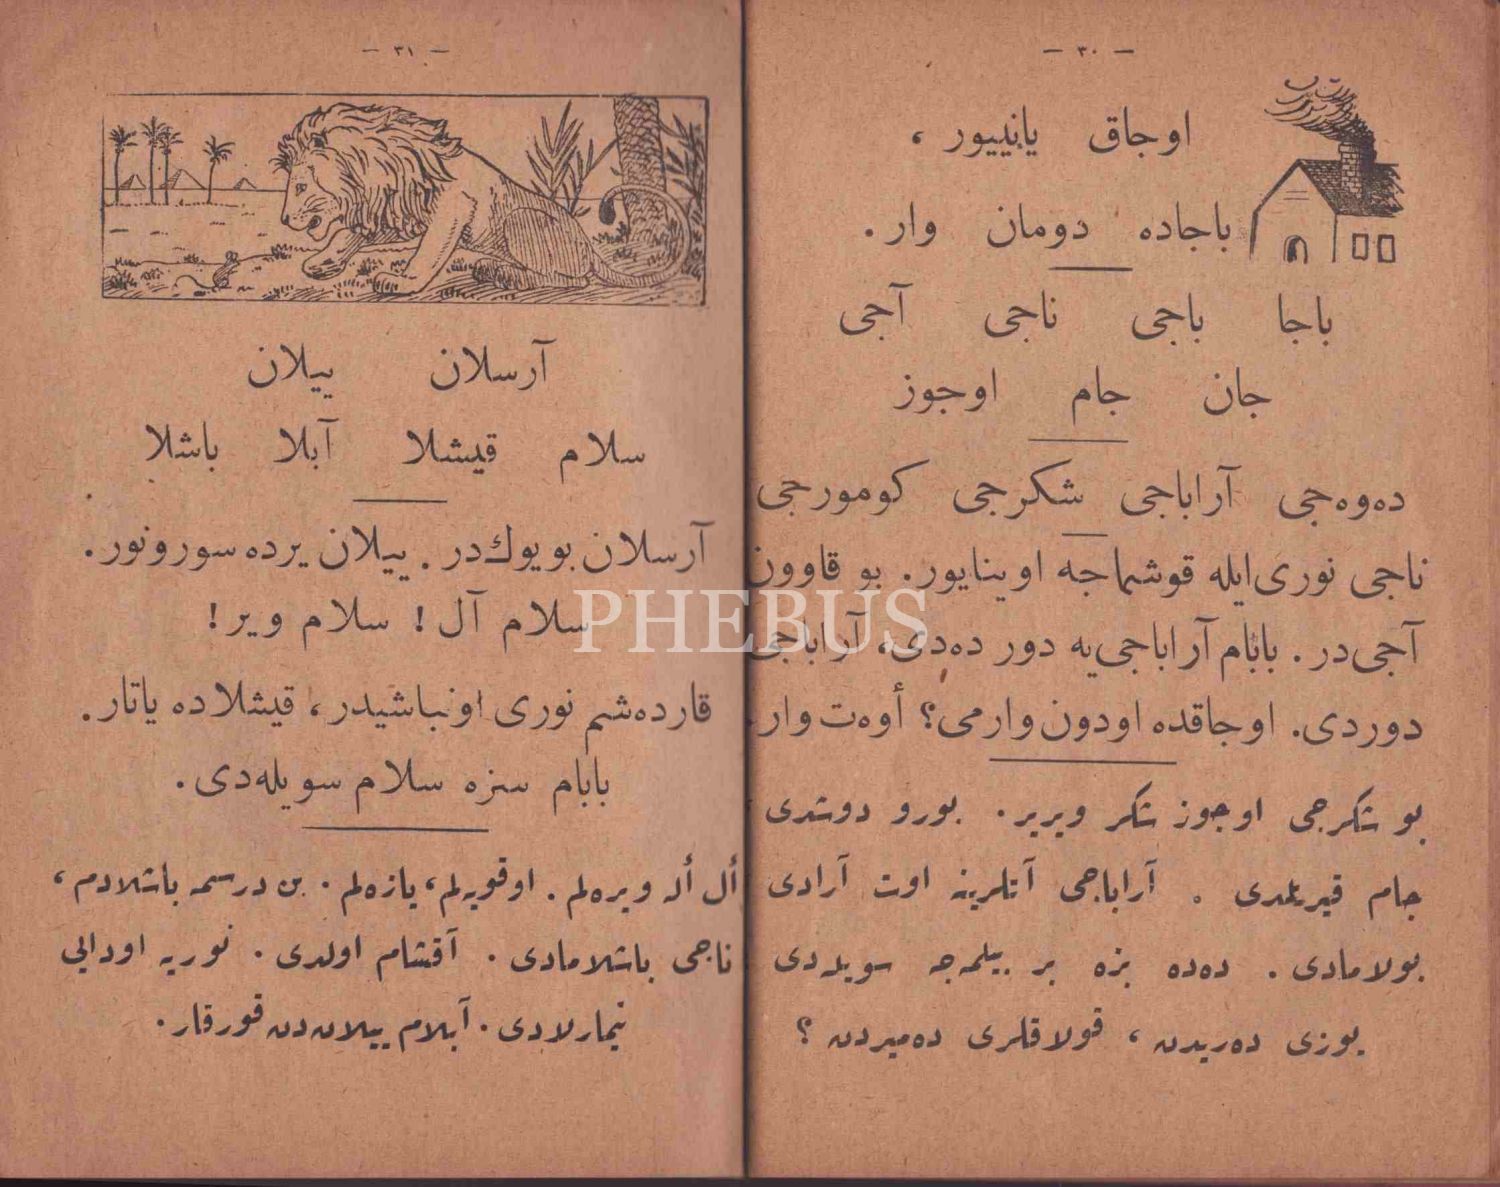 — ٣٠ —
اوجاق يانييور ،
باجاده دومان وار.
باجا باجى ناجى آجى
جان جام اوجوز
ده‌وه‌جى آراباجى شكرجى كومورجى
ناجى نورى‌ايله قوشماجه اوينايور. بو قاوون
آجى‌در. بابام آراباجى‌يه دور ده‌دى، آراباجى
دوردى. اوجاقده اودون وارمى؟ أوه‌ت وار.
بو شكرجى اوجوز شكر ويرير. بورو دوشدى
جام قيريلدى . آراباجى آتلرينه اوت آرادى
بولامادى . ده‌ده بزه بر بيلمه‌جه سويله‌دى
يوزى ده‌ريدن ، قولاقلرى ده‌ميردن ؟
— ٣١ —
آرسلان ييلان
سلام قيشلا آبلا باشلا
آرسلان بويوك‌در. ييلان يرده سورونور.
سلام آل! سلام وير!
قارده‌شم نورى اونباشيدر، قيشلاده ياتار.
بابام سزه سلام سويله‌دى.
أل أله ويره‌لم. اوقويه‌لم، يازه‌لم. بن درسمه باشلادم،
ناجى باشلامادى. آقشام اولدى. نوريه اودايى
تيمارلادى. آبلام ييلان‌دن قورقار.
PHEBUS